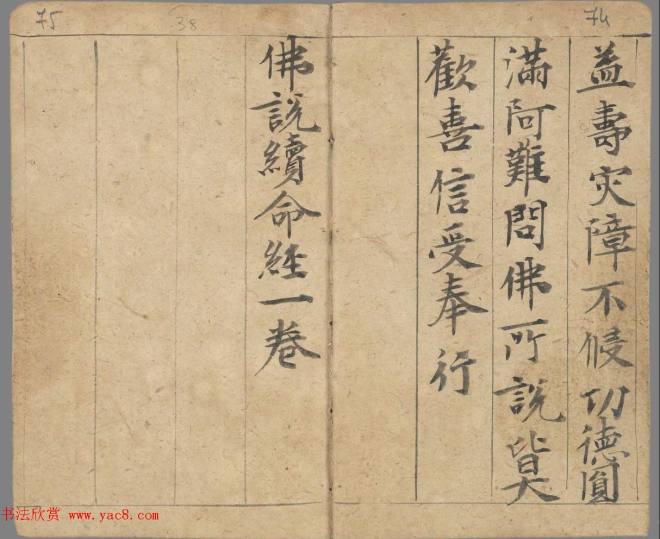 74
益壽灾障不侵功德圓
滿阿難問佛所說皆大
歡喜信受奉行
75
38
佛說續命經一卷
书法欣赏 www.yac8.com